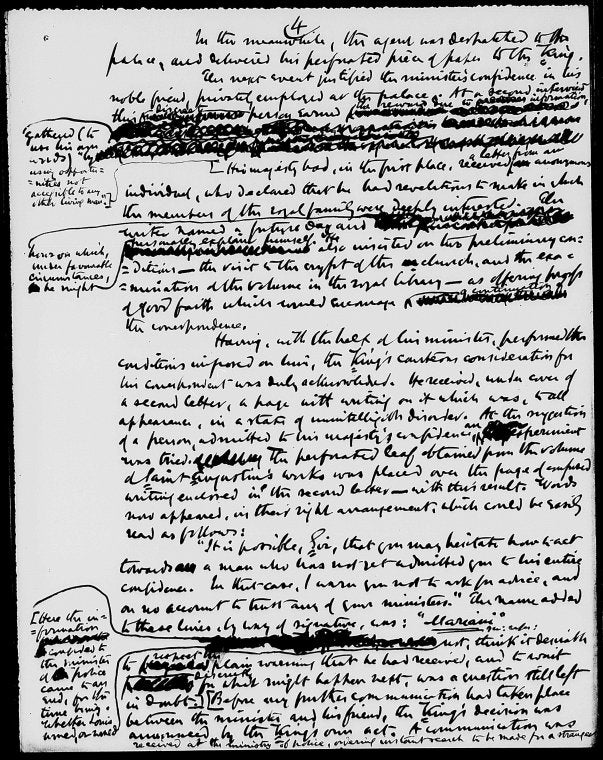 4
In the meanwhile, the agent was despatched to the
palace, and delivered his perforated piece of paper to the King.
The next event justified the minister's confidence in his
noble friend, privately employed at the palace. At a second interview
this person earned the reward due to information
gathered (to
use his own
words) "by
using opportu-
=nities not
accessible to any
other living man."]
[His majesty had, in the first place, received a letter from an anonymous
individual, who declared that he had revelations to make in which
the members of the royal family were deeply interested. The
writer named a future day and
hour on which,
under favourable
circumstances,
he might
personally explain himself. He also insisted on two preliminary con-
=ditions — the visit to the crypt of the church, and the exa-
=mination of the volume in the royal library — as offering proofs
of good faith which would encourage a continuation of
the correspondence.
Having, with the help of his minister, performed the
conditions imposed on him, the King's courteous consideration for
his correspondent was duly acknowledged. He received, under cover of
a second letter, a page with writing on it which was, to all
appearance, in a state of unintelligible disorder. At the suggestion
of a person, admitted to his majesty's confidence, an experiment
was tried. The perforated leaf obtained from the volume
of Saint Augustin's works was placed over the page of confused
writing enclosed in the second letter — with this result. Words
now appeared, in their right arrangement, which could be easily
read as follows:
"It is possible, Sir, that you may hesitate how to act
towards a man who has not yet admitted you to his entire
confidence. In that case, I warn you not to ask for advice, and
on no account to trust any of your ministers." The name added
to these lines, by way of signature, was: "Mariani".
[Here the in-
=formation
confided to
the minister
of police
came to an
end, for the
time being.
Whether Louis
would, or would
not, think it desirable
to respect the plain warning that he had received, and to wait
for what might happen next, was a question still left
in doubt.] [Before any further communication had taken place
between the minister and his friend, the King's decision was
announced by the King's own act. A communication was
received at the ministry of police, ordering instant search to be made for a stranger